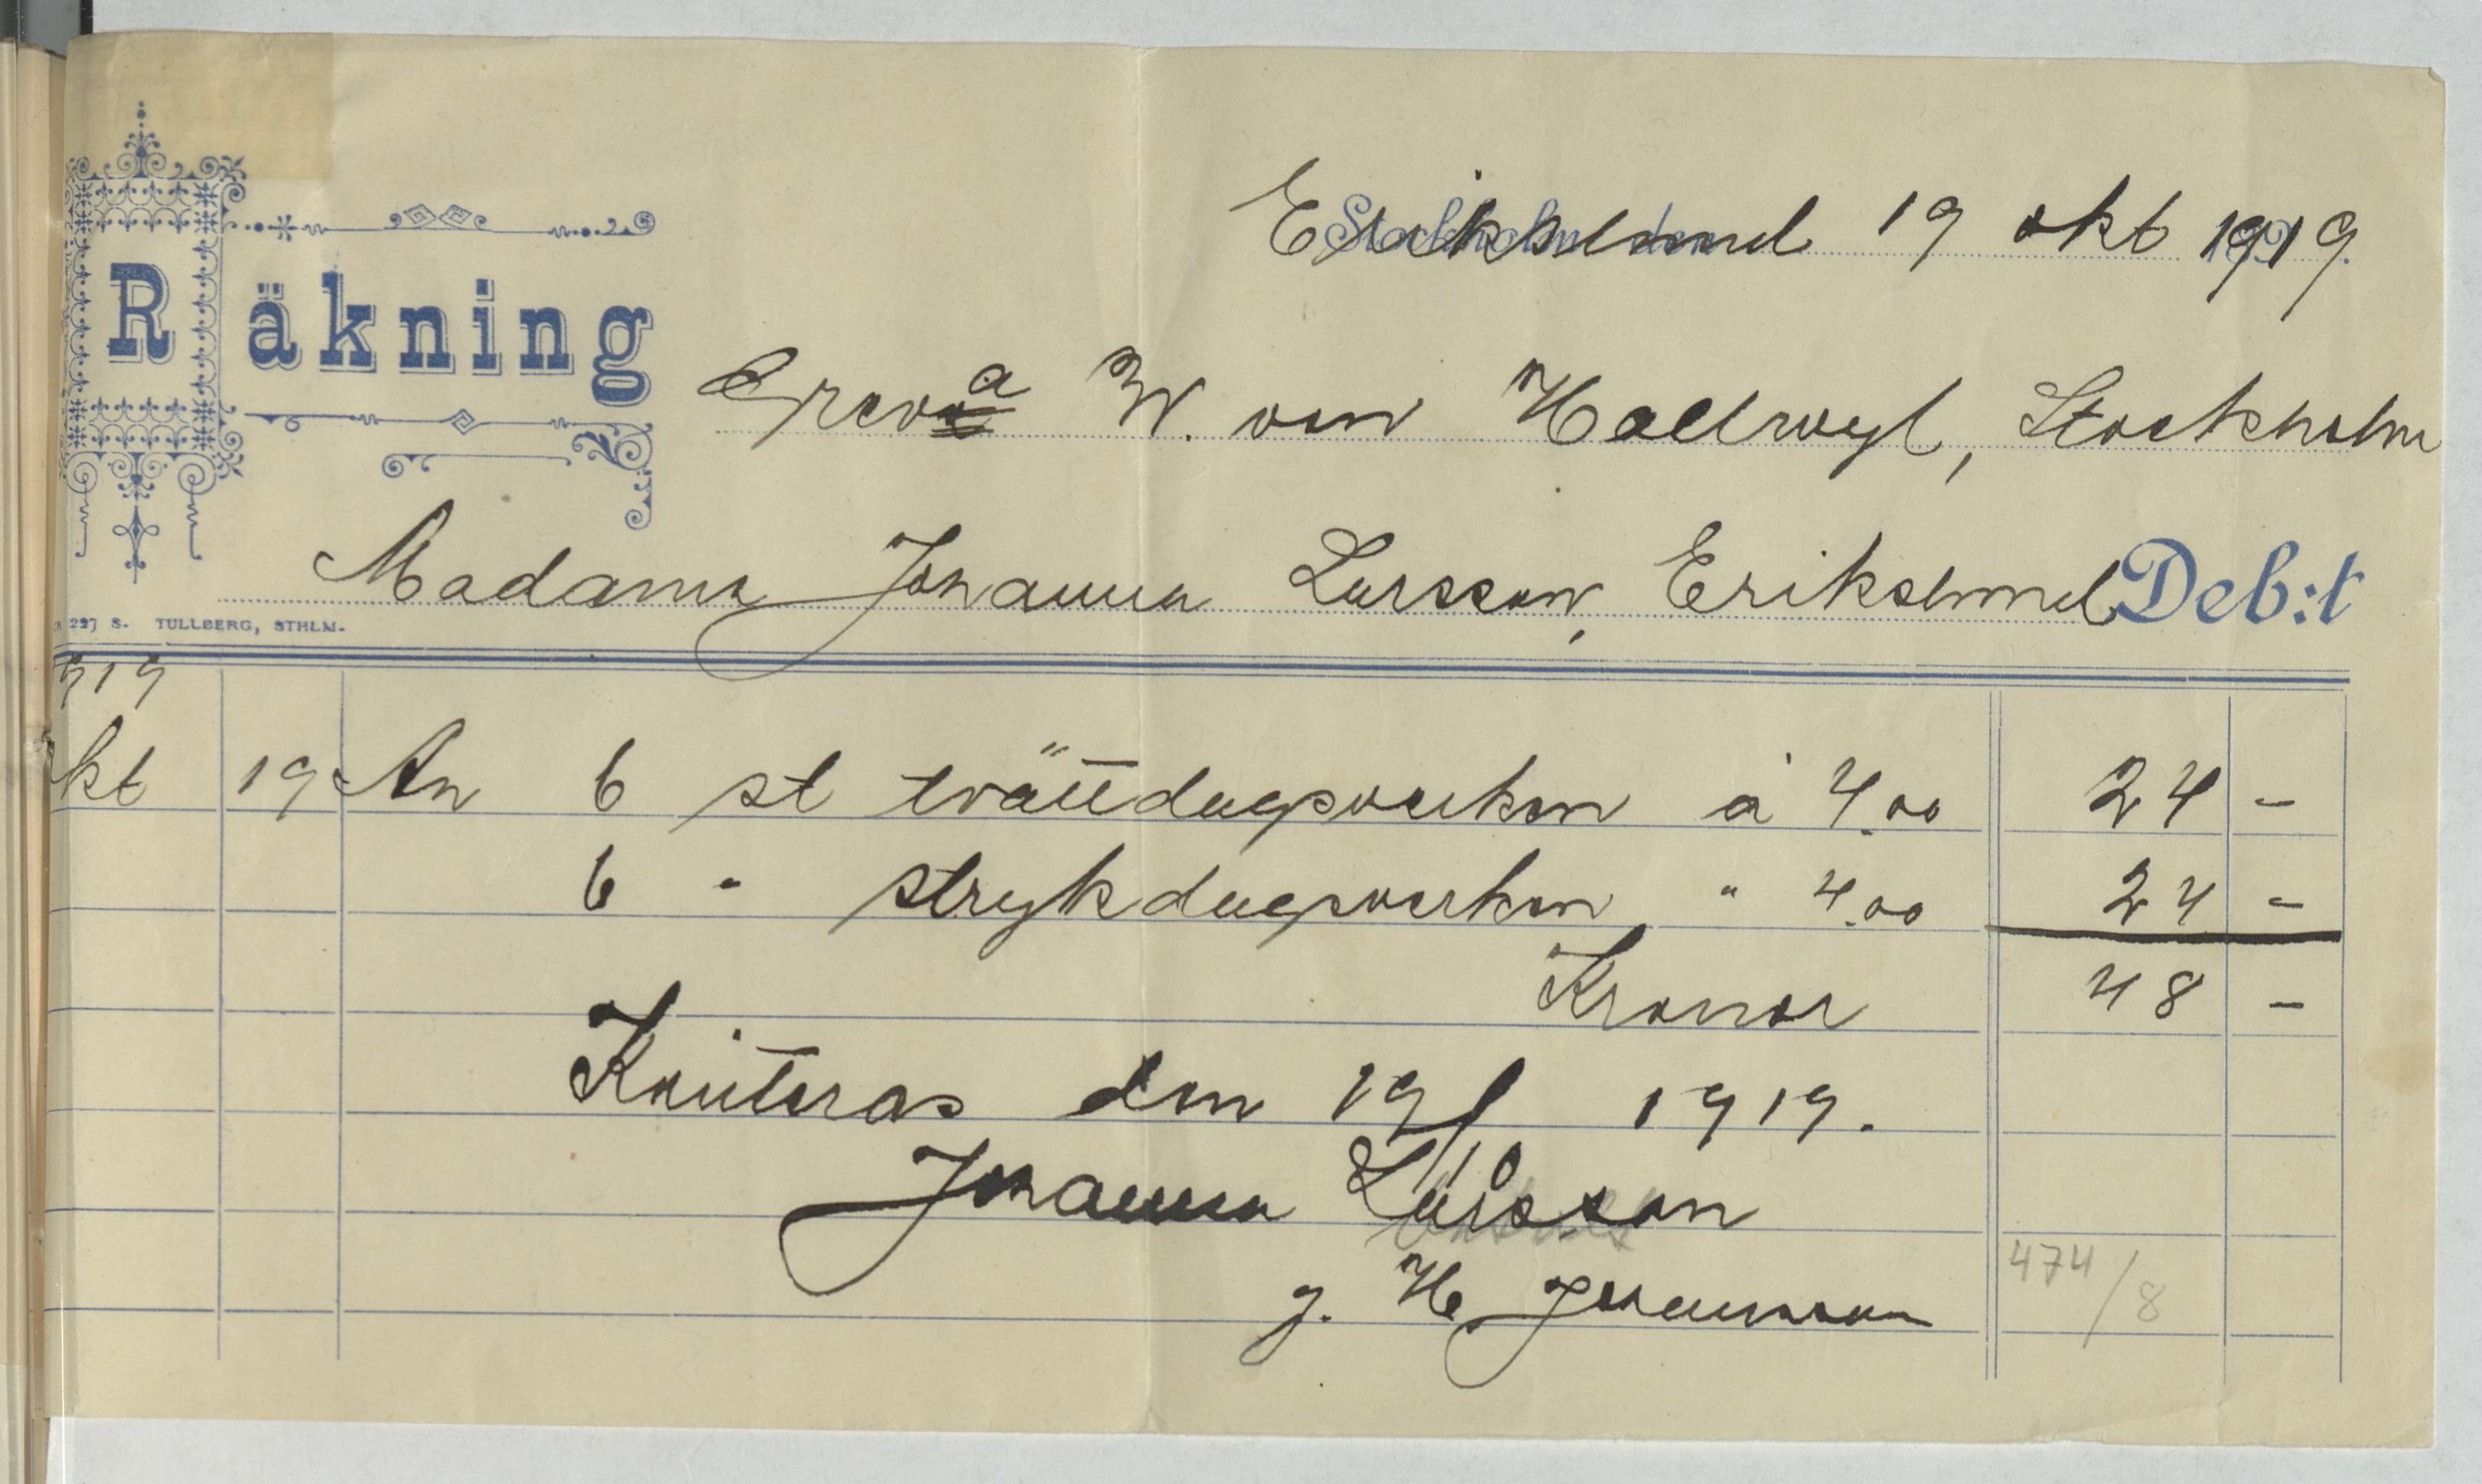 Räkning
Erikslund 19 okt 1919.
Greve a W. von Hallwyl, Stockholm
Madame Johanna Larsson, Erikslund Deb:t
227 S. TULLBERG, STHLM.
919
kt 19 An 6 st tvättdagsverken à 4.00 24 -
6 " strykdagsverken " 4.00 24 -
Kronor 48 -
Kvitteras den 19/10 1919.
Johanna Larsson
g. H. Johansson
474/8